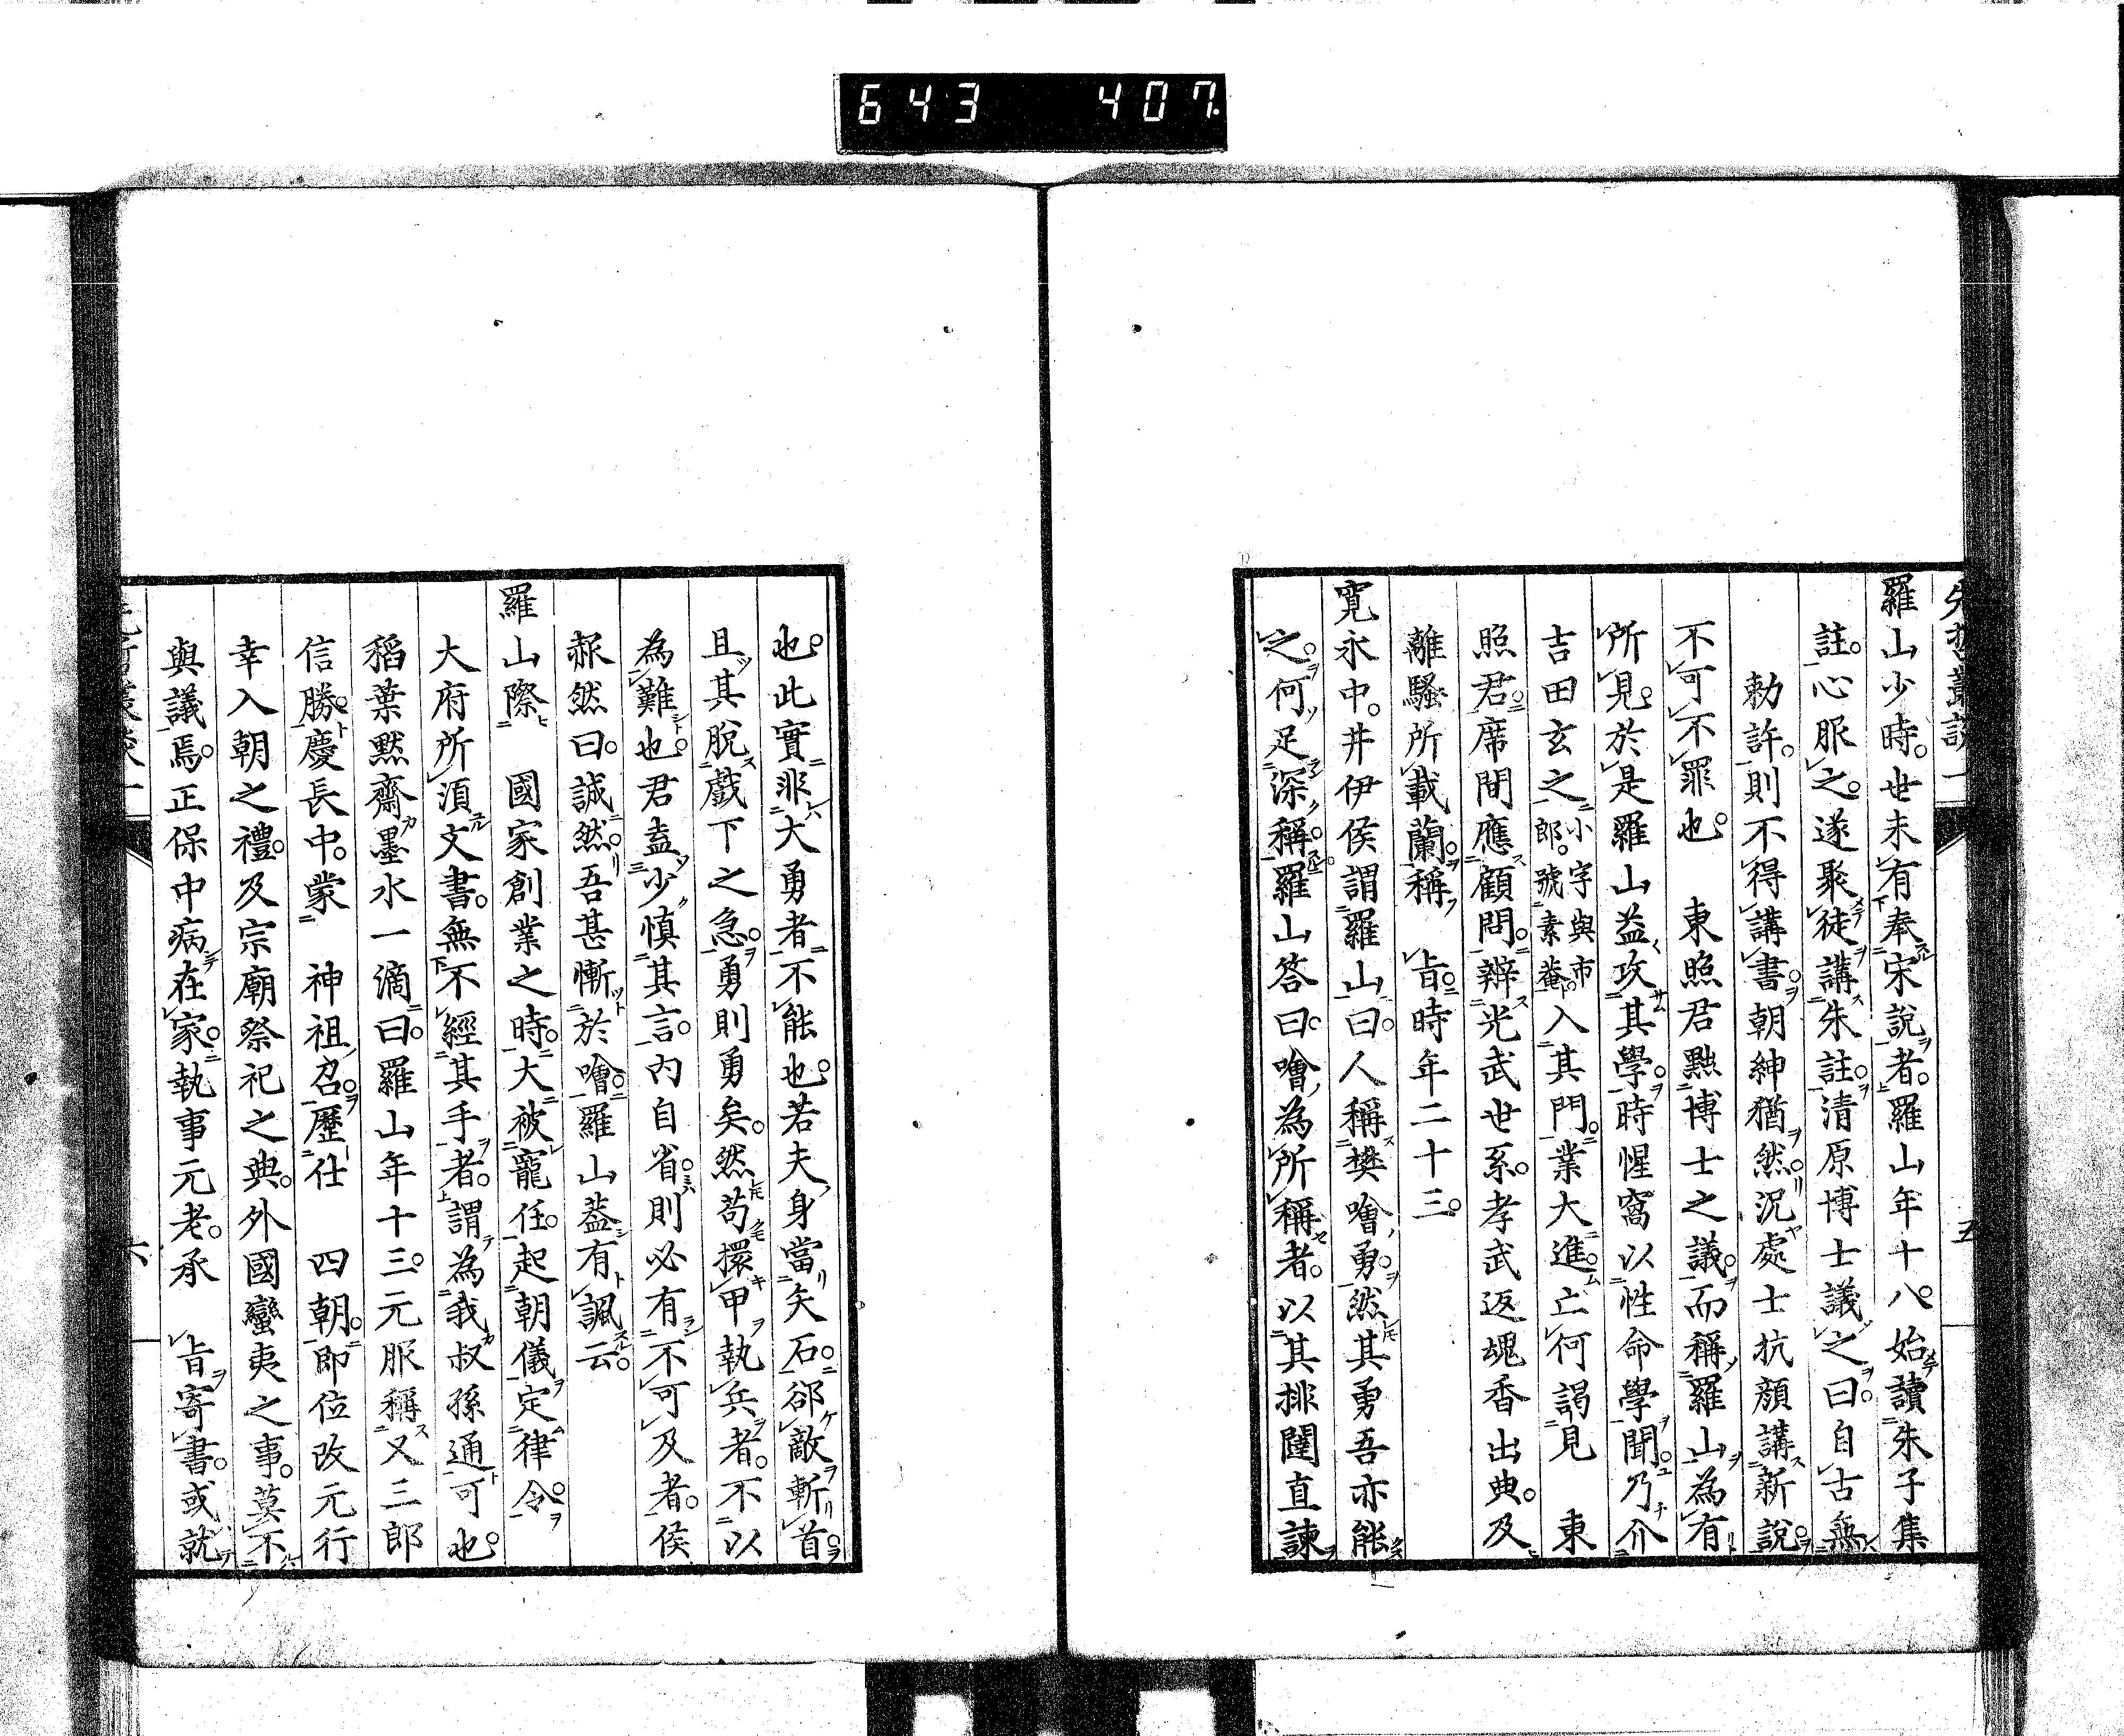 643 407
先哲叢談一 五
羅山少時。世未有奉宋說者。羅山年十八。始讀朱子集
註。心服之。遂聚徒講朱註。清原博士議之曰。自古無
勅許。則不得講書。朝紳猶然。況處士抗顏講新說。
不可不罪也 東照君黜博士之議。而稱羅山為有
所見。於是羅山益攻其學。時惺窩以性命學聞。乃介
吉田玄之小字與市郎。號素菴。入其門。業大進。亡何謁見 東
照君。席間應顧問。辨光武世系。孝武返魂香出典。及
離騷所載蘭。稱 旨。時年二十三。
寬永中。井伊侯謂羅山曰。人稱樊噲勇。然其勇吾亦能
之。何足深稱。羅山答曰。噲為所稱者。以其排闥直諫
也。此實非大勇者不能也。若夫身當矢石。郤敵斬首。
且其脫戲下之急。勇則勇矣。然苟擐甲執兵者。不以
為難也。君盍少慎其言。內自省。則必有不可及者。侯
赧然曰。誠然。吾甚慚於噲。羅山葢有諷云。
羅山際 國家創業之時。大被寵任。起朝儀定律令。
大府所須文書。無不經其手者。謂為我叔孫通可也。
稻葉默齋墨水一滴曰。羅山年十三。元服稱又三郎
信勝。慶長中。蒙 神祖召。歷仕 四朝。即位改元行
幸入朝之禮。及宗廟祭祀之典。外國蠻夷之事。莫不
與議焉。正保中病在家。執事元老。承 旨寄書。或就
先哲叢談一 六